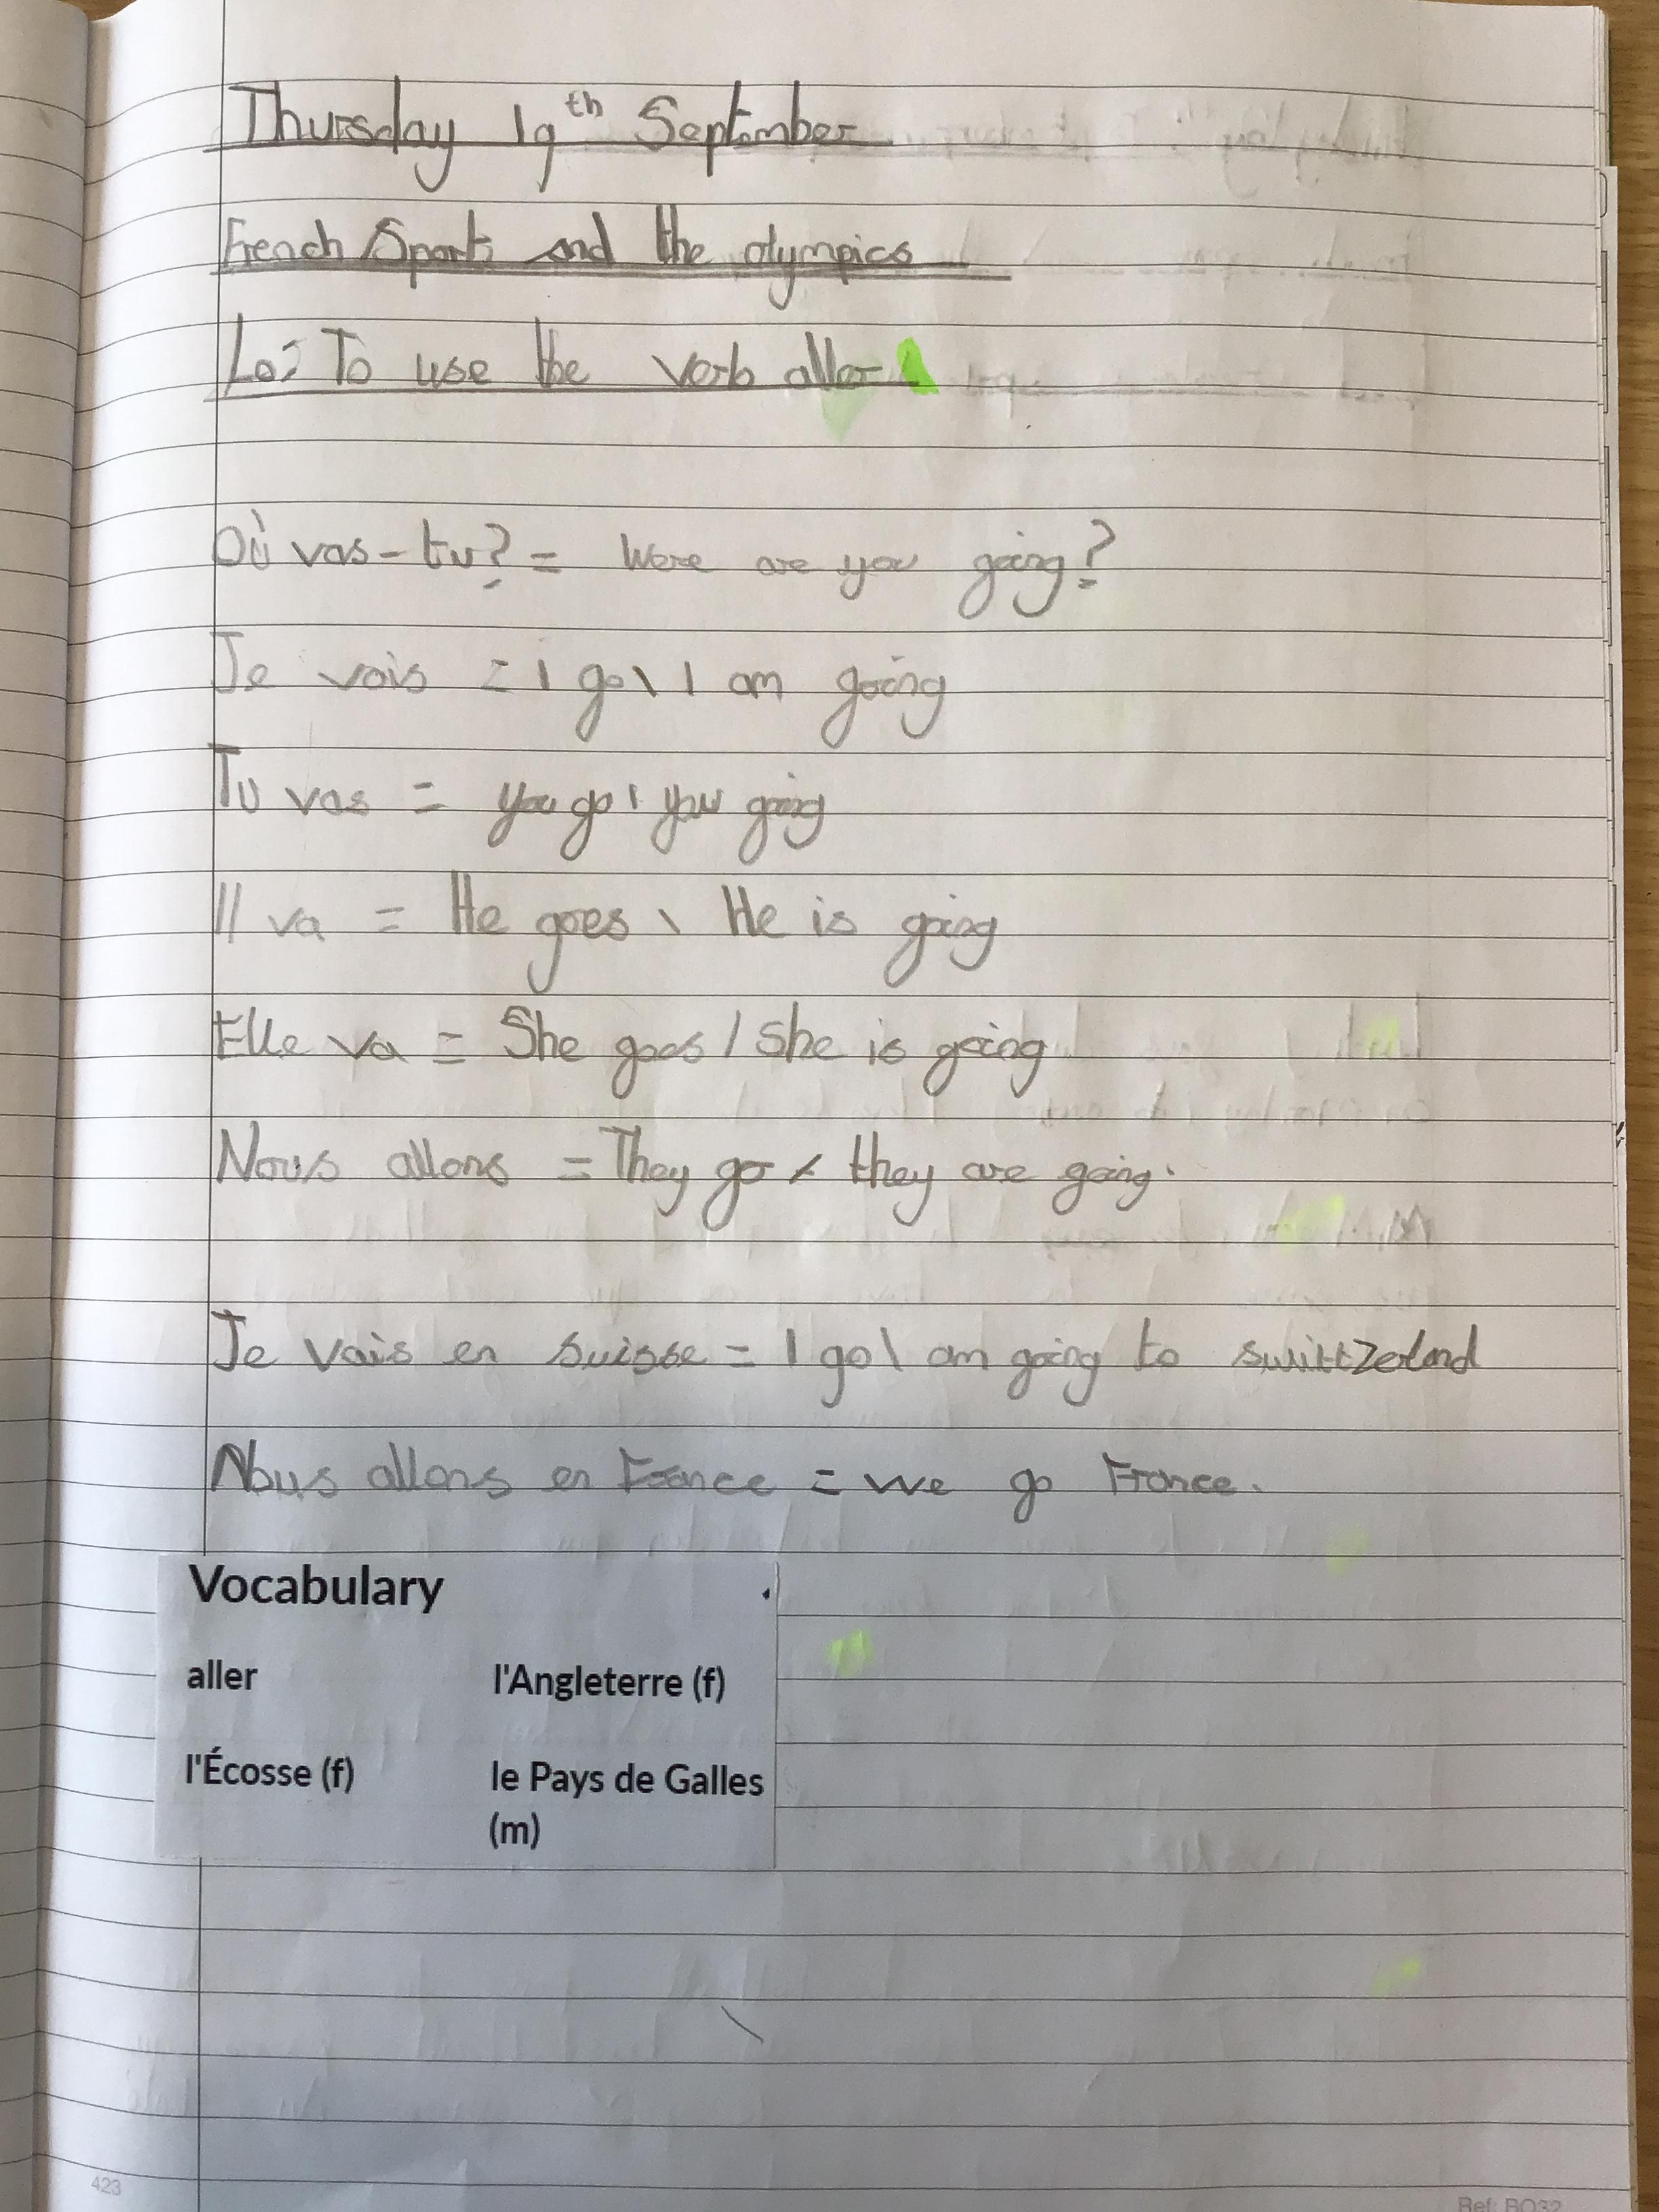 Thursday 19th September
French Sports and the olympics
Lo: To use the verb aller
Où vas-tu? = Were are you going?
Je vais = I go \ I am going
Tu vas = you go / you going
Il va = He goes \ He is going
Elle va = She goes / She is going
Nous allons = They go / they are going.
Je vais en suisse = I go \ am going to swittzerland
Nous allons en France = we go France.
Vocabulary
aller l'Angleterre (f)
l'Écosse (f) le Pays de Galles
(m)
423
Ref: BO32